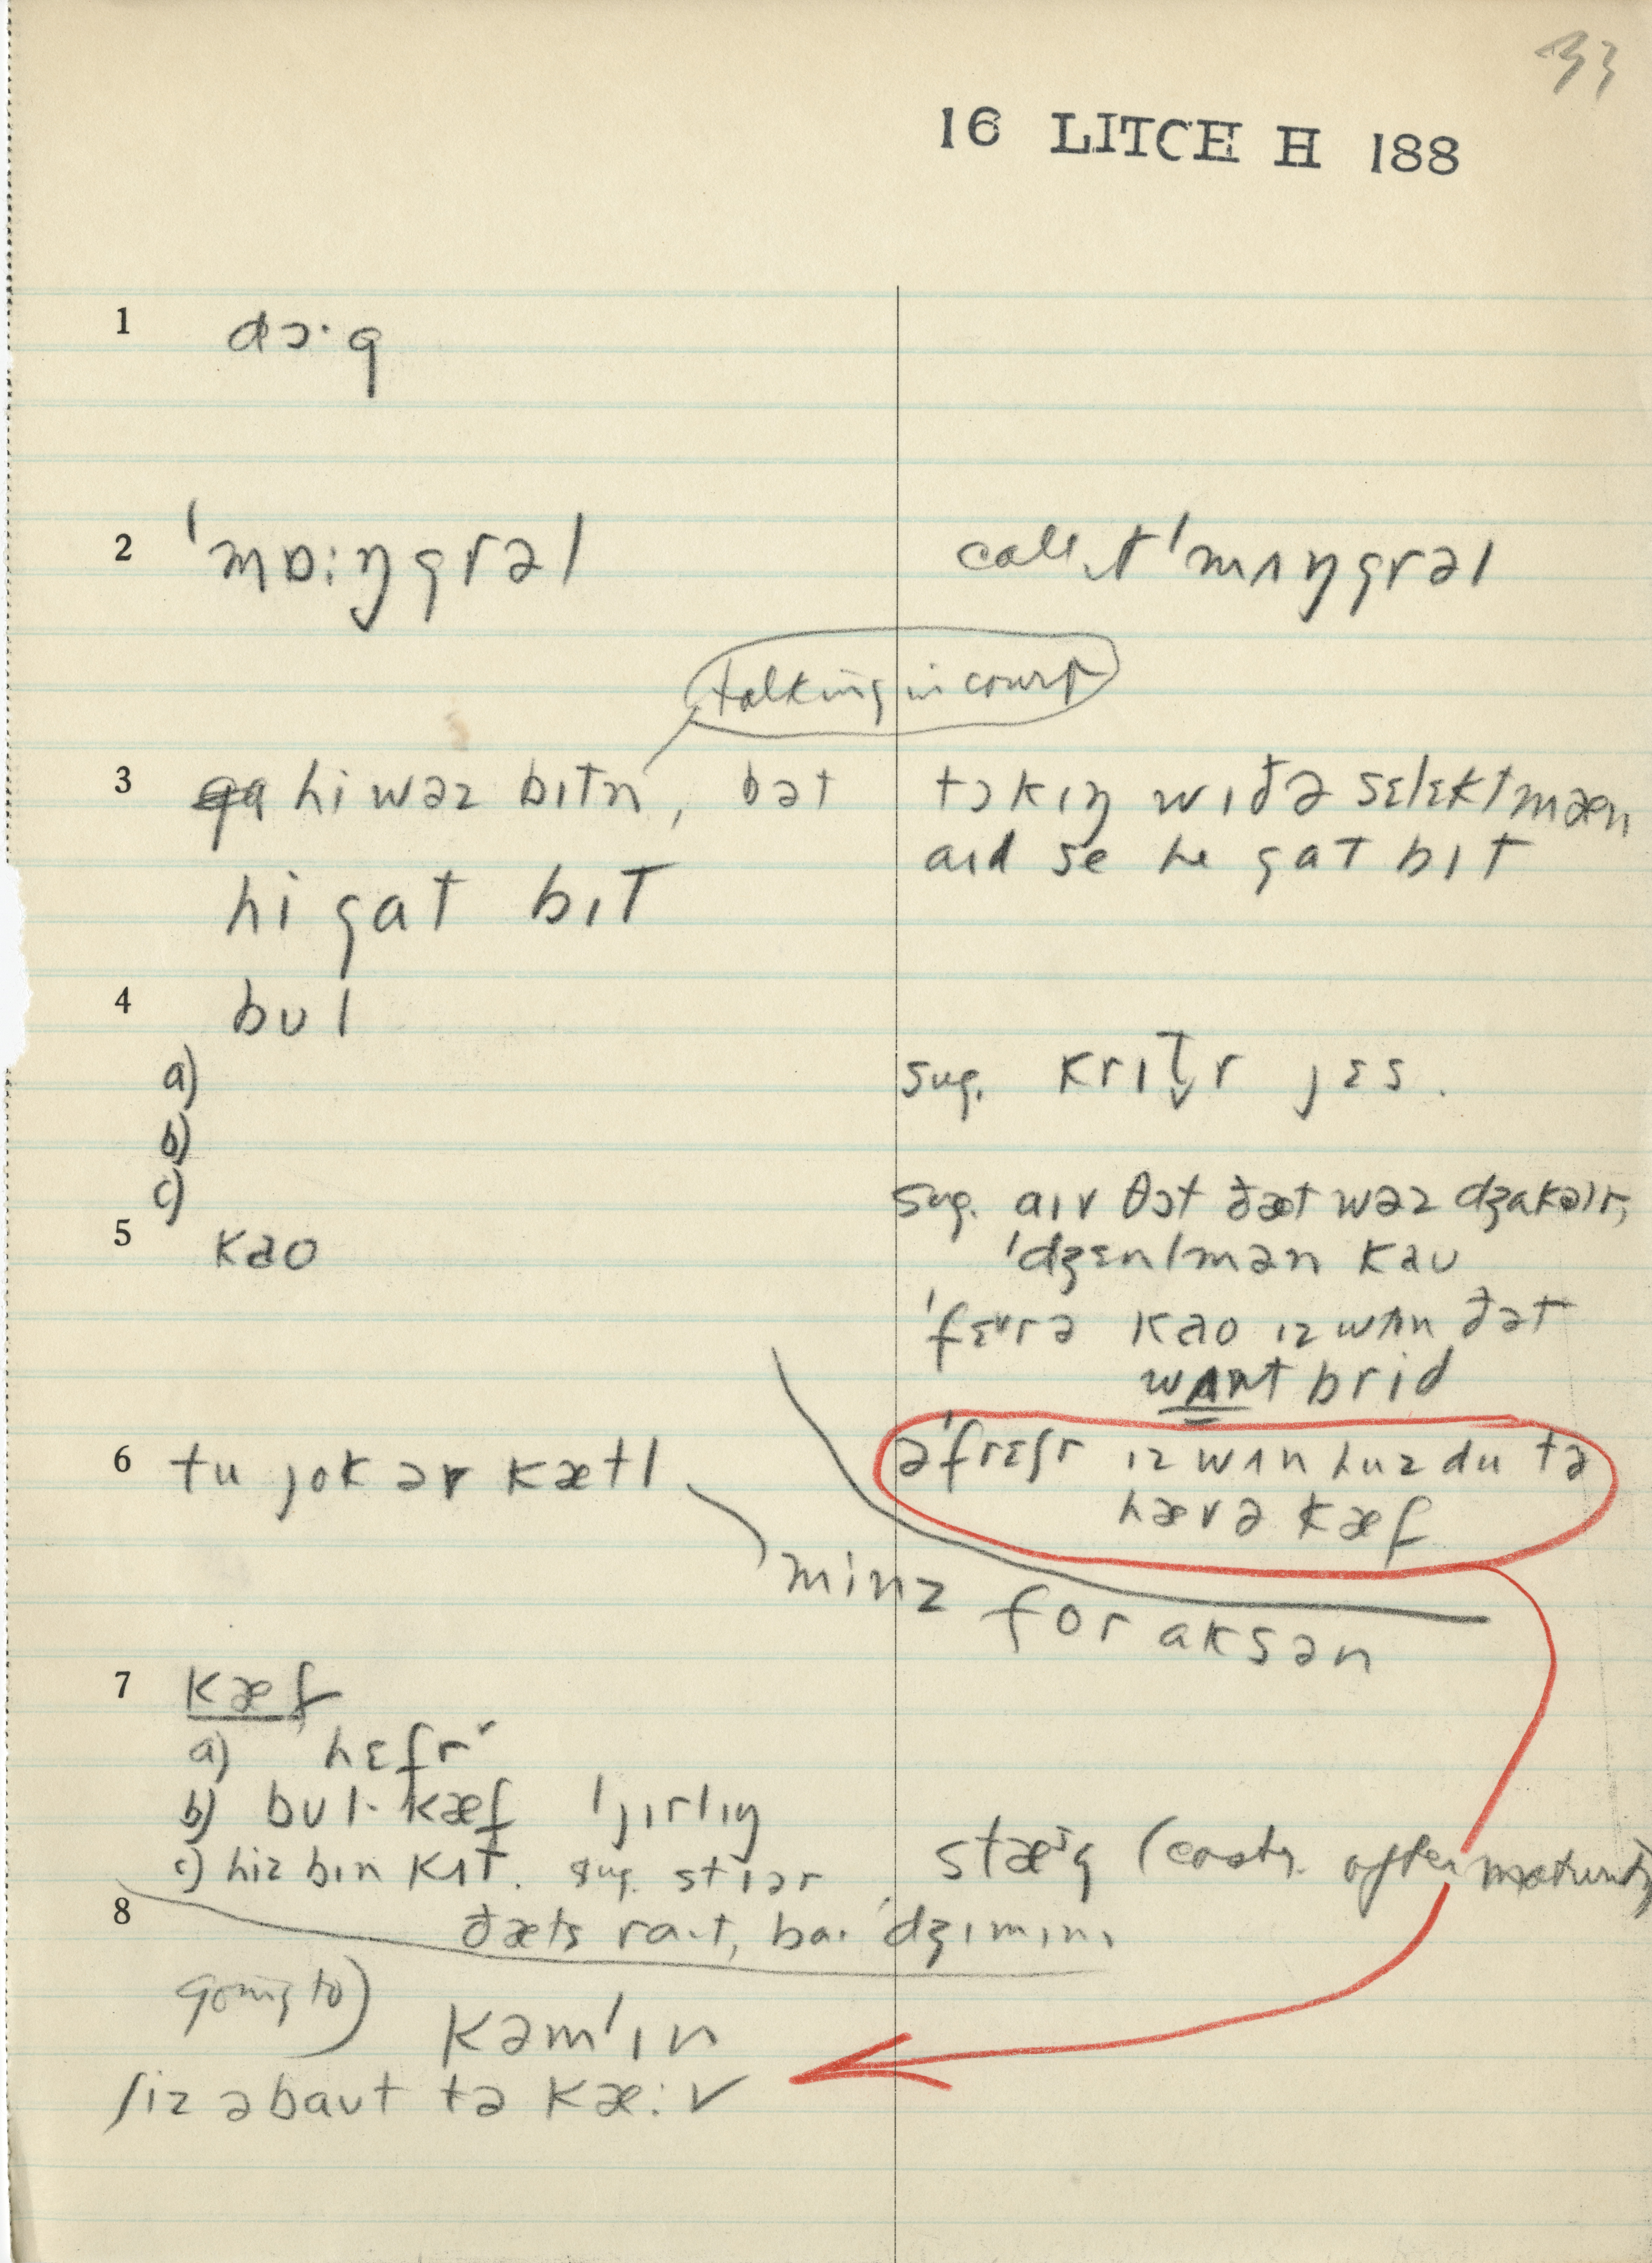 33
16 LITCH H 188
1 dɔ·g
2 ˈmɒ:ŋgrəl
call it ˈmʌŋgrəl
talking in court
3 hi wəz bɪtn, bət
tɔkɪŋ wɪðə sɛlɛktmæn
hi gat bɪt
aɪd se he gat bɪt
4 bʊl
a) sug. krɪt̬r jɛs.
b)
c) sug. aɪv θɔt ðæt wəz dʒakəlr,
5 kaʊ
ˈdʒɛntmən kaʊ
ˈfɛrə kaʊ ɪz wʌn ðət
wʌnt brid
6 tu jok ər kætl
əˈfrɛʃr ɪz wʌn huz du tə
hævə kæf
minz for aksən
7 kæf
a) hɛfr
b) bʊl·kæf ˈjɪrlɪŋ
c) hiz bɪn kʌt. sug. stɪər
stæᶦg (castr. after maturity
8 ðæts raɪt, baɪ ˈdʒɪmɪnɪ
going to)
kəmˈɪn
ʃiz əbaʊt tə kæ:v